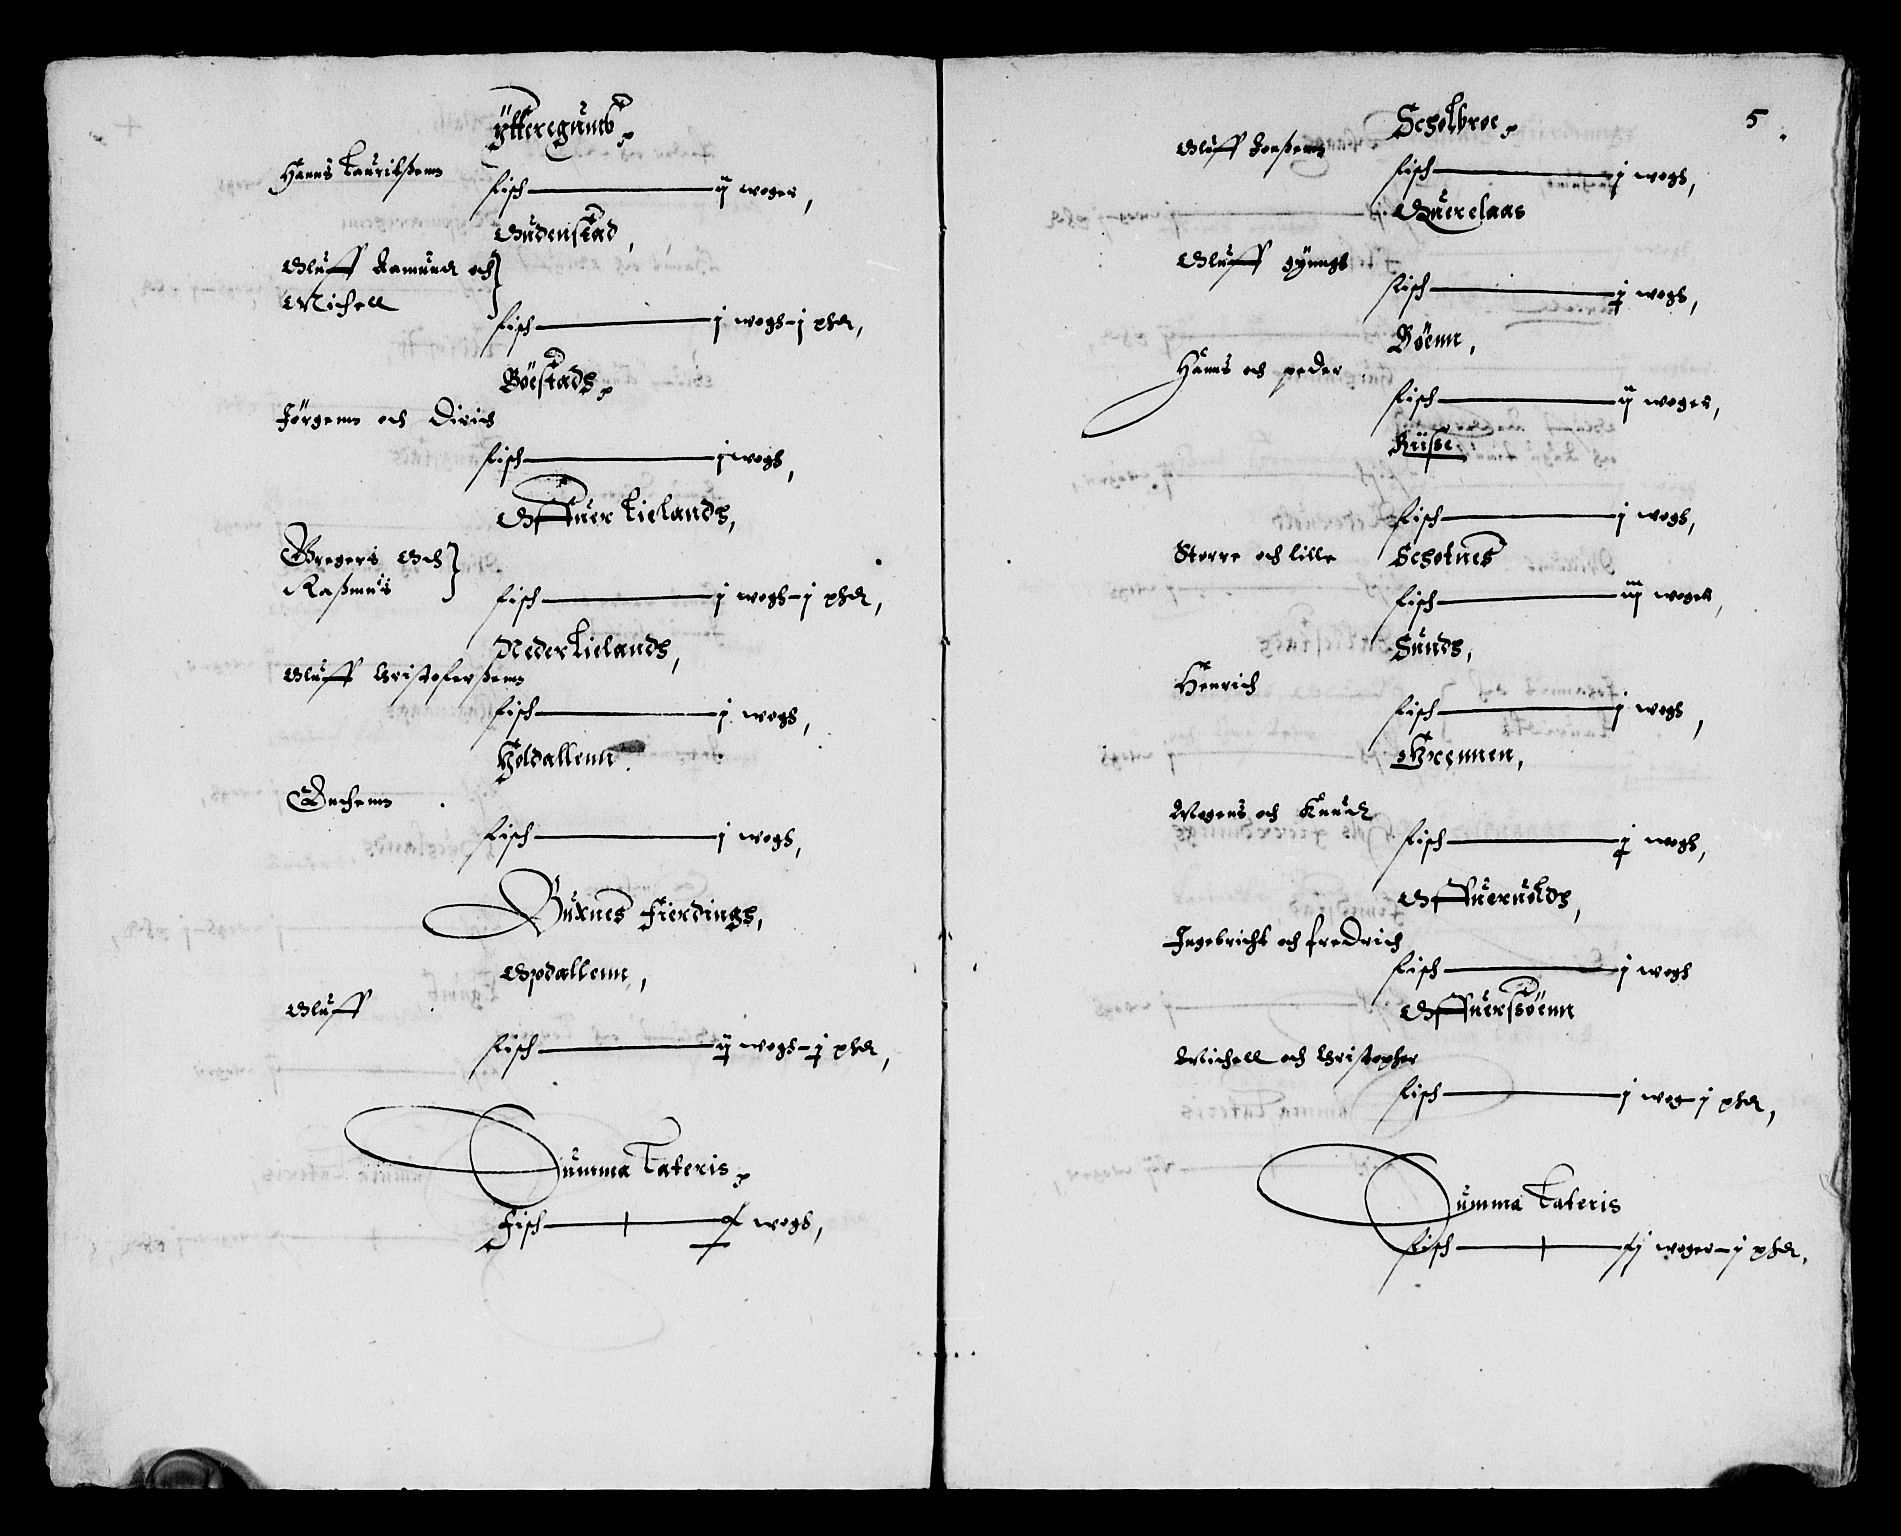 Ÿtteregūnd,
Hanns Lauritzßenn
Fisch ij woger,
Gūdenstad,
Oluff Amūnd och
Michell
Fisch j wogh j phd,
Böestadh,
Jörgenn och Dirich
Fisch j wogh,
Offuer Lielandh,
Gregers Och
Raßmūs
Fisch j wogh j phd,
Neder Lielandh,
Oluff Christoferßenn
Fisch j wogh,
Holdallenn
Fisch j wogh,
Būxnes Fierdingh,
Opdallenn,
Oluff
Fisch ij wogh j phd,
Summa Lateris,
Fisch wogh,
5
Scholbroe,
Oluff Joenßenn
Fisch j wogh,
Querelaas
Oluff
Fisch j wogh,
Böenn,
Hanns och peder
Fisch ij woger,
Rüße
Fisch j wogh,
Storre och lille Schotnes
Fisch iij woger,
Sūndh,
Henrich
Fisch j wogh,
Grennen,
Mogens och Knūd
Fisch j wogh,
Offueruoldh,
Ingebricht och fredrich
Fisch j wogh
Offuerssöenn
Michell och Christopher
Fisch j wog j phd,
Summa Lateris
Fisch woger j phd,